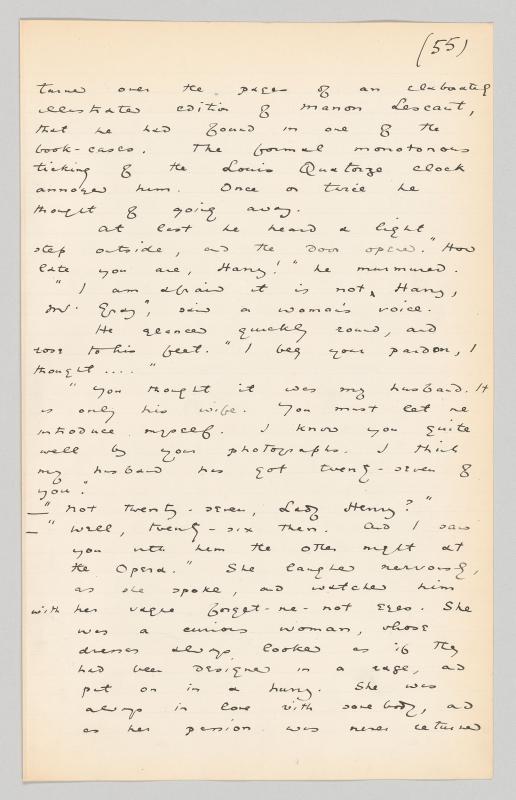 (55)
turned over the pages of an elaborately
illustrated edition of Manon Lescaut,
that he had found in one of the
book-cases. The formal monotonous
ticking of the Louis Quatorze clock
annoyed him. Once or twice he
thought of going away.
At last he heard a light
step outside, and the door opened. "How
late you are, Harry!" he murmured.
"I am afraid it is not Harry,
Mr. Gray", said a woman's voice.
He glanced quickly round, and
rose to his feet. "I beg your pardon, I
thought ...."
"You thought it was my husband. It
is only his wife. You must let me
introduce myself. I know you quite
well by your photographs. I think
my husband has got twenty-seven of
you."
"Not twenty-seven, Lady Henry?"
"Well, twenty-six then. And I saw
you with him the other night at
the Opera." She laughed nervously,
as she spoke, and watched him
with her vague forget-me-not eyes. She
was a curious woman, whose
dresses always looked as if they
had been designed in a rage, and
put on in a hurry. She was
always in love with somebody, and
as her passion was never returned